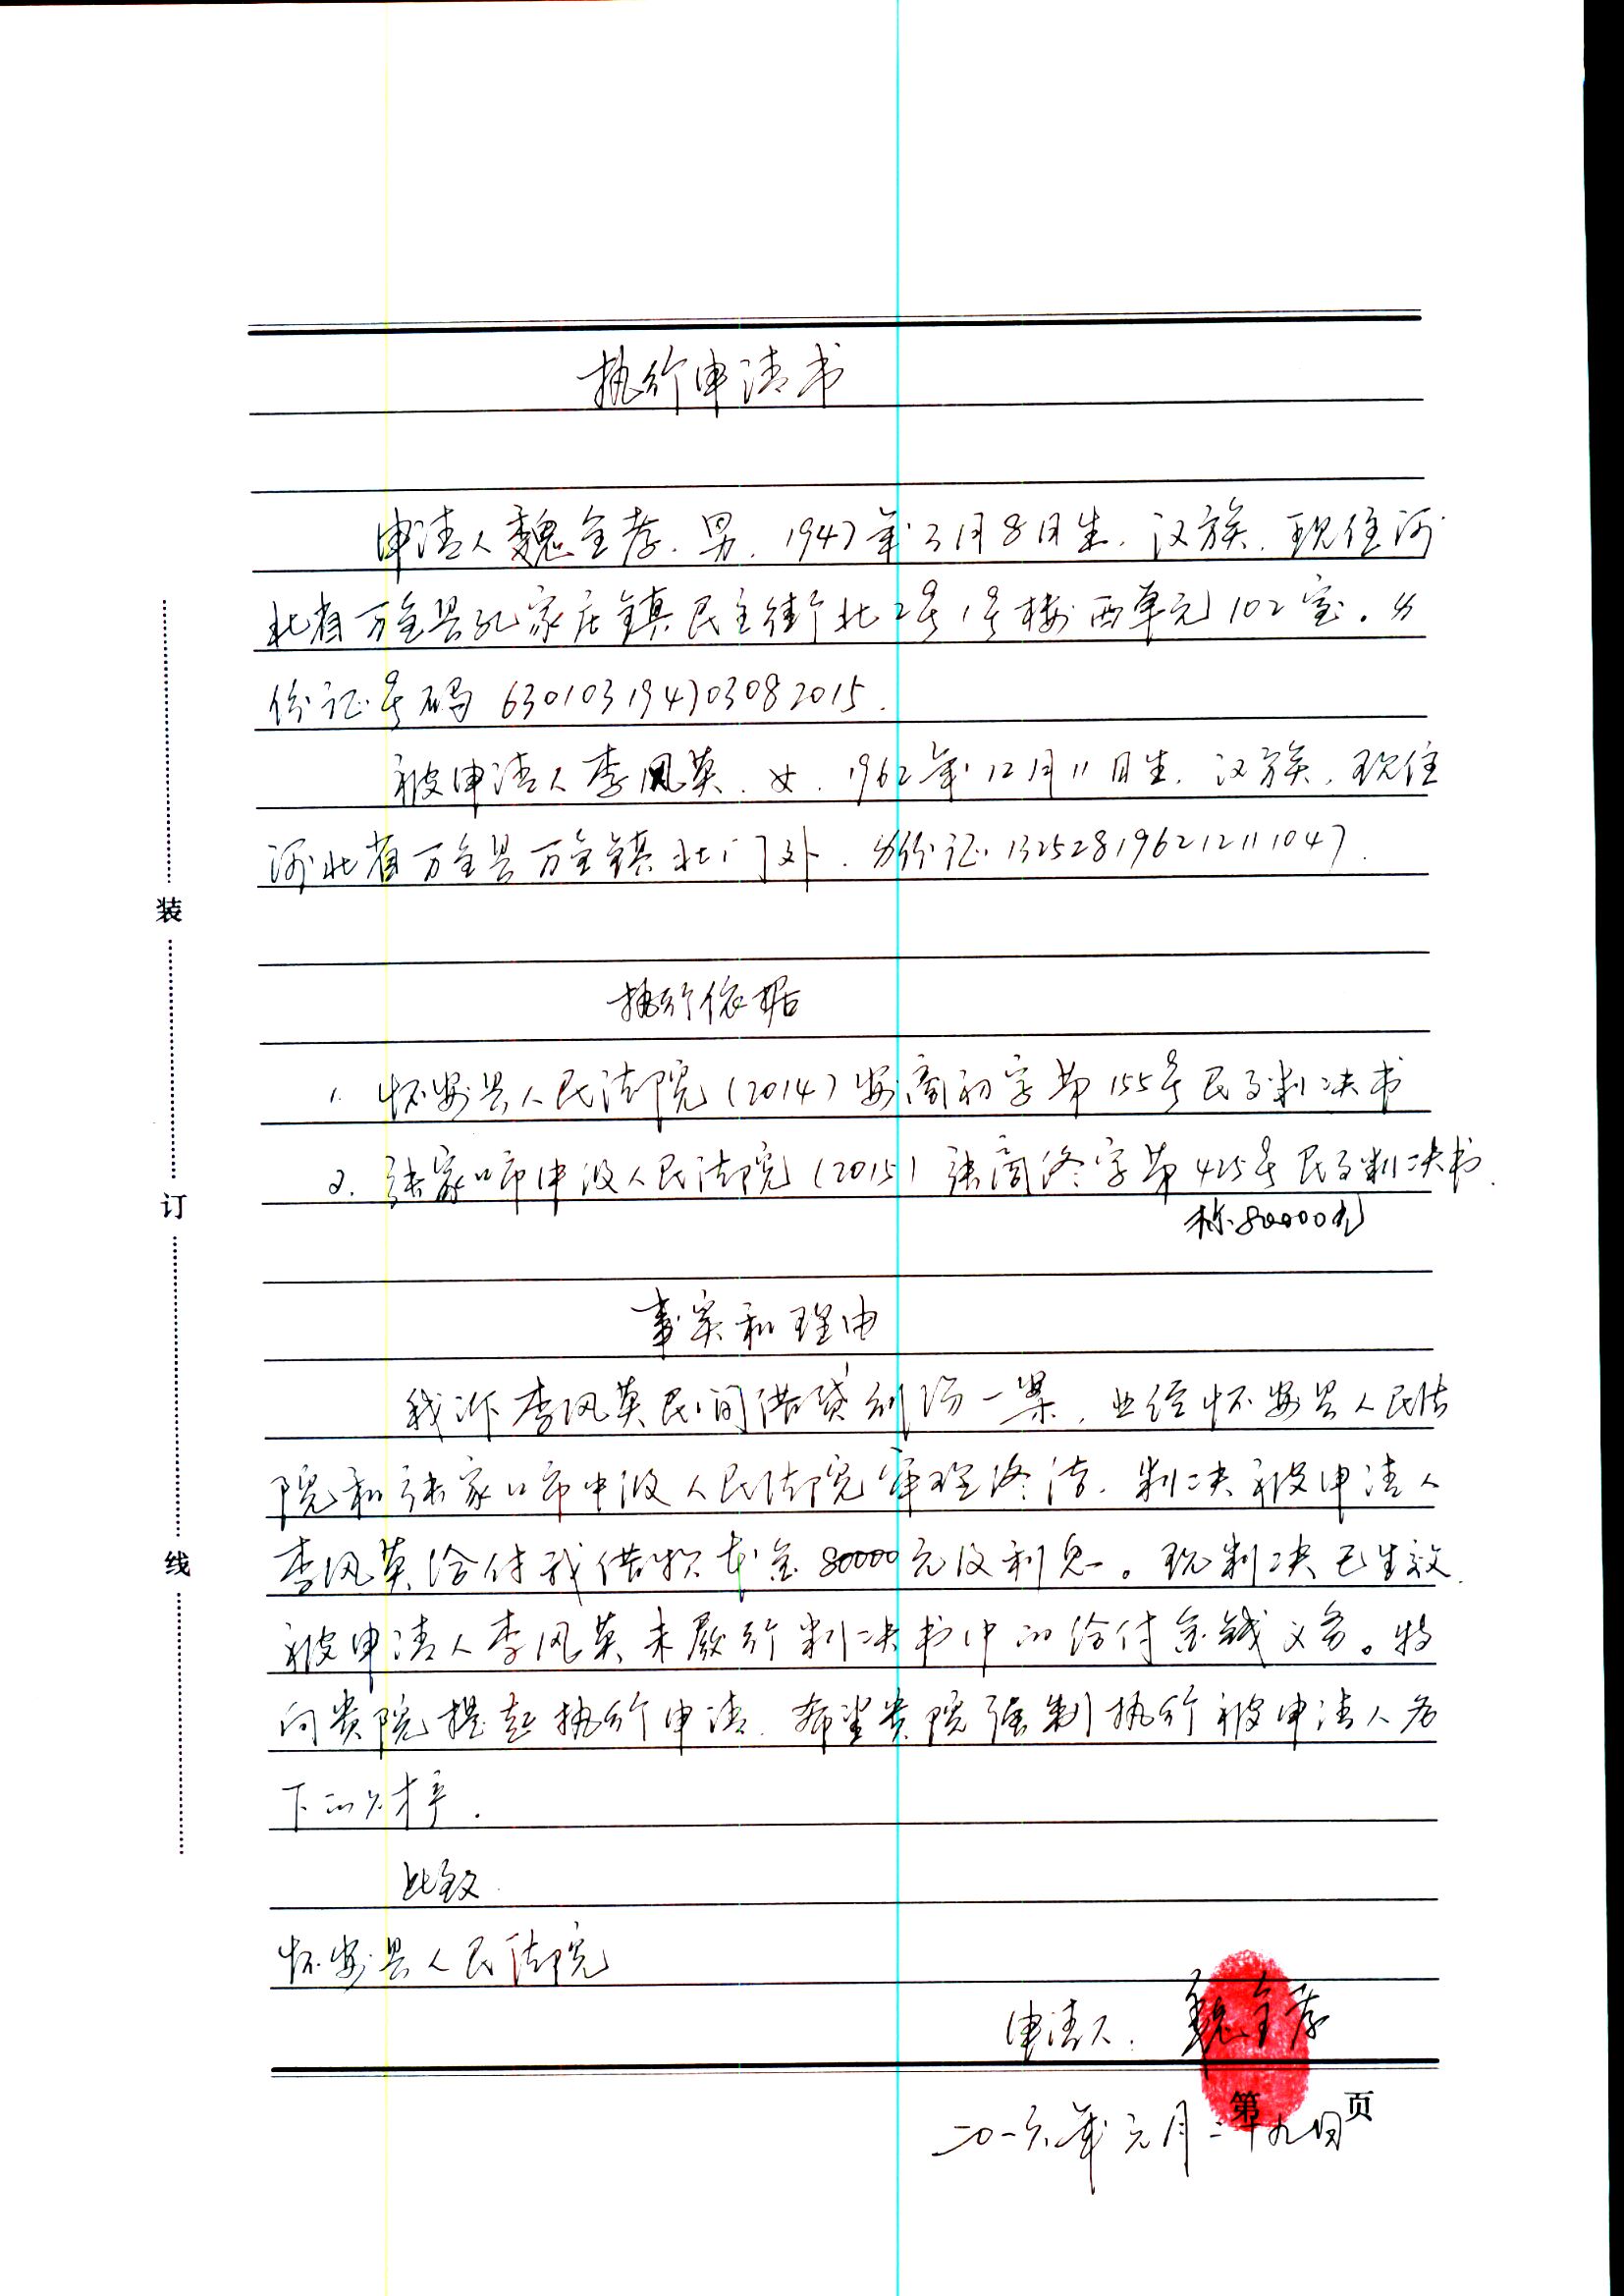 执行申请书
申请人魏全孝.男.1947年3月8日生.汉族.现住河
北省万全县孔家庄镇民主街北2号1号楼西单元102室。身
份证号码 630103194703082015.
被申请人李凤英.女.1962年12月11日生.汉族.现住
河北省万全县万全镇北门外.身份证.132528196212111047.
执行依据
1.怀安县人民法院(2014)安商初字第155号民事判决书
2.张家口市中级人民法院(2015)张商终字第425号民事判决书.
80000元
事实和理由
我诉李凤英民间借贷纠纷一案,业经怀安县人民法
院和张家口市中级人民法院审理终结.判决被申请人
李凤英给付我借款本金80000元及利息。现判决已生效.
被申请人李凤英未履行判决书中的给付金钱义务。特
向贵院提起执行申请.希望贵院强制执行被申请人名
下的财产.
此致
怀安县人民法院
申请人.魏全孝
第 页
二〇一六年元月二十九日
装
订
线